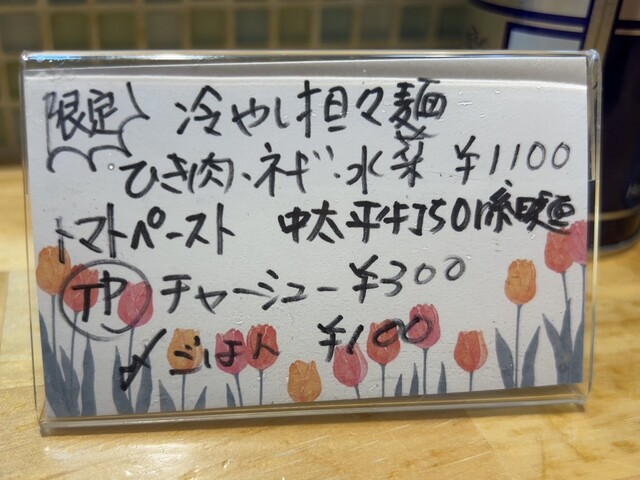 限定 冷やし担々麺
ひき肉、ネギ、水菜 ¥1100
トマトペースト 中太平打ち
TP チャーシュー ¥300
〆ごはん ¥100